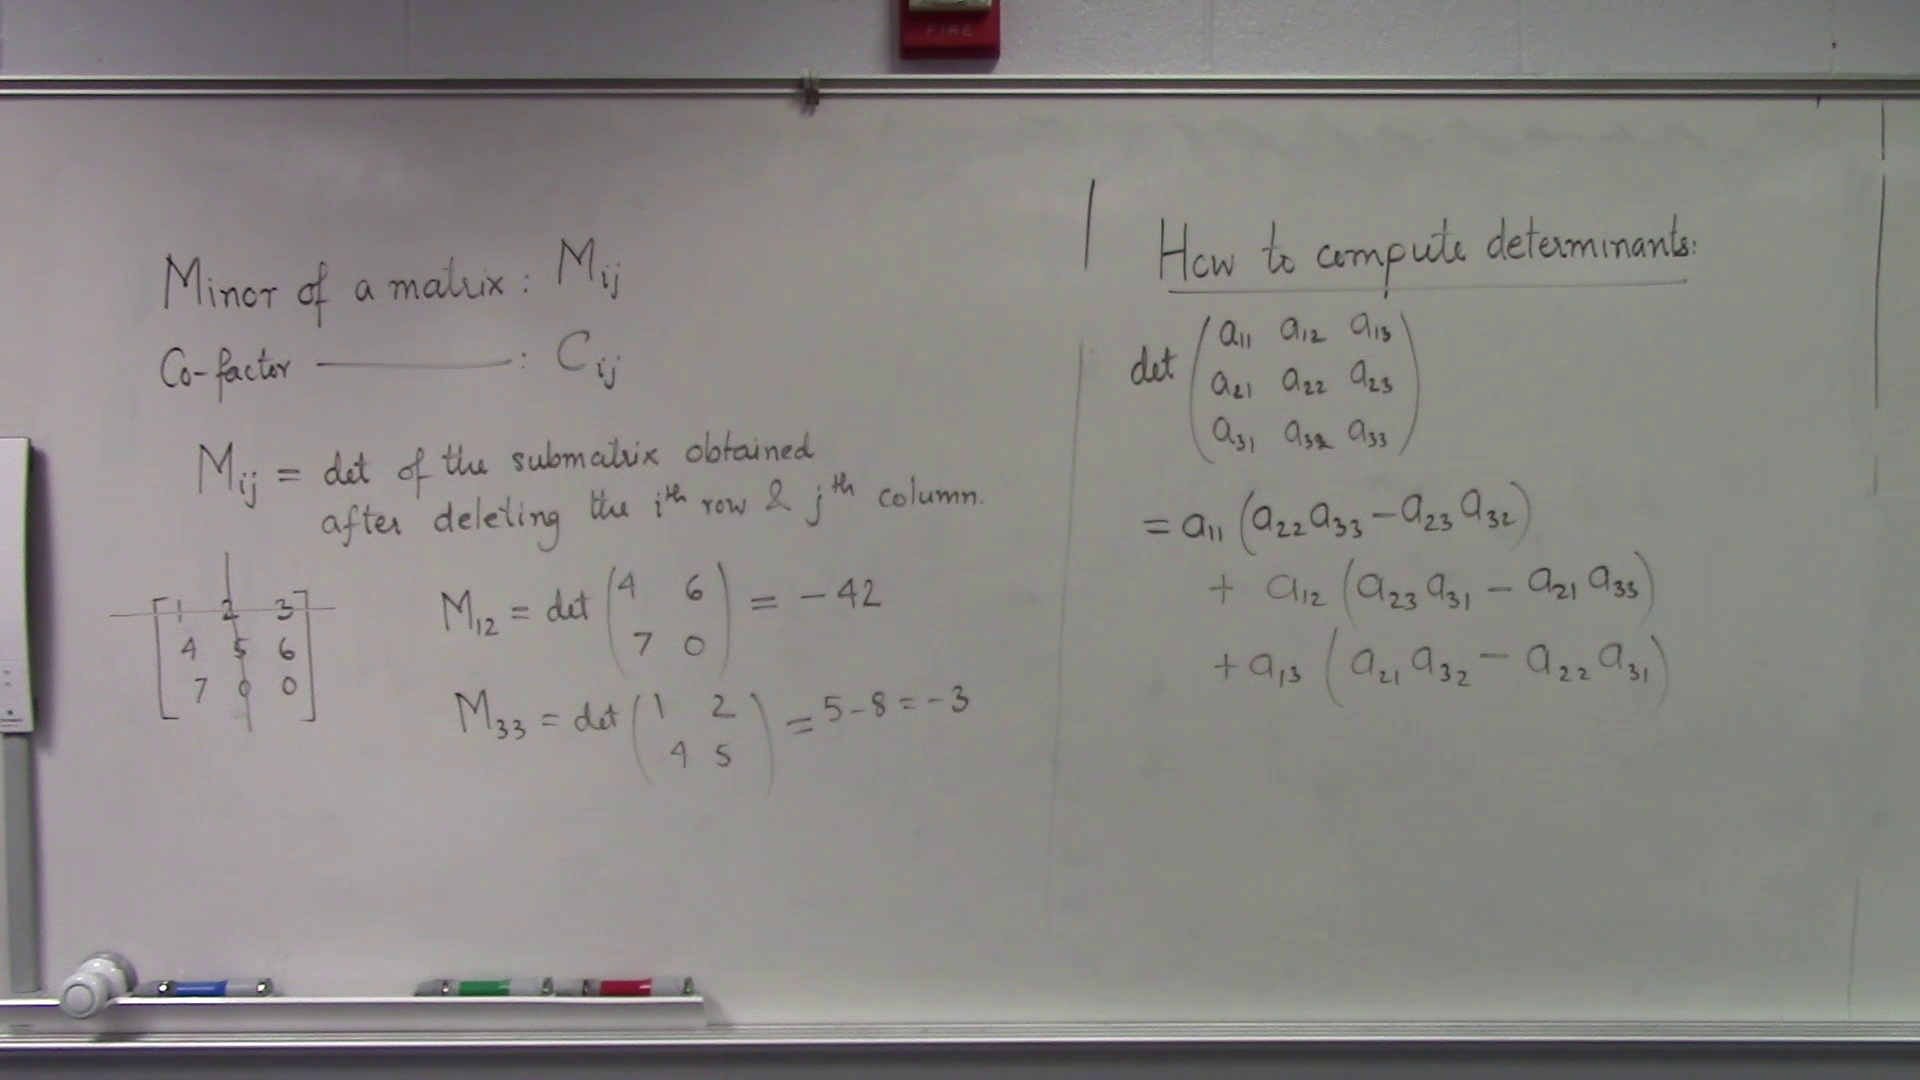 FIRE
Minor of a matrix : Mij
Co-factor ———— : Cij
Mij = det of the submatrix obtained
after deleting the ith row & jth column.
[1 2 3
4 5 6
7 0 0]
M12 = det (4 6
7 0) = -42
M33 = det (1 2
4 5) = 5-8 = -3
How to compute determinants:
det (a11 a12 a13
a21 a22 a23
a31 a32 a33)
= a11 (a22 a33 - a23 a32)
+ a12 (a23 a31 - a21 a33)
+ a13 (a21 a32 - a22 a31)